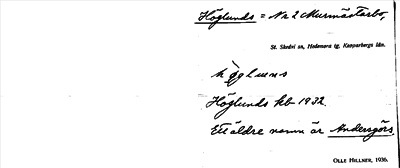 Höglunds = Nr 2 Murmästarbo,
St. Skedvi sn, Hedemora tg, Kopparbergs län.
högluns
Höglunds kb 1932.
Ett äldre namn är Andersgörs.
OLLE HILLNER, 1936.